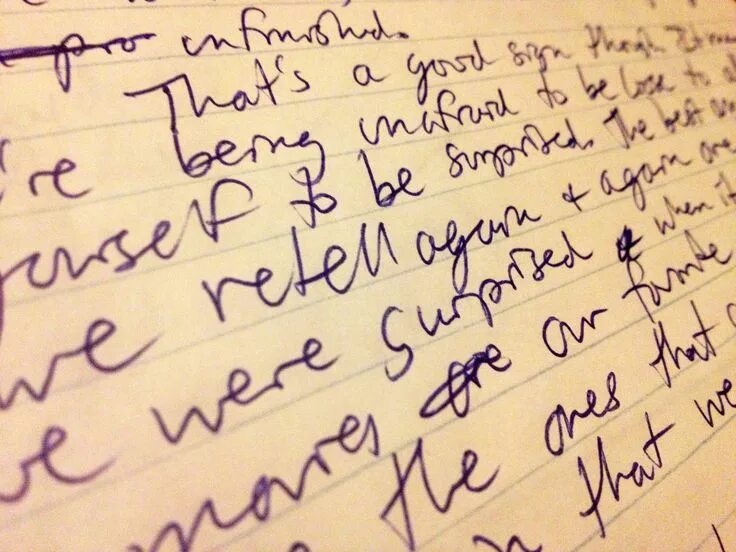 pro unfinished.
That's a good sign though
're being unafraid to be
yourself to be surprised. The best
we retell again & again are
we were surprised & when it
movies are our favorite
the ones that
that we